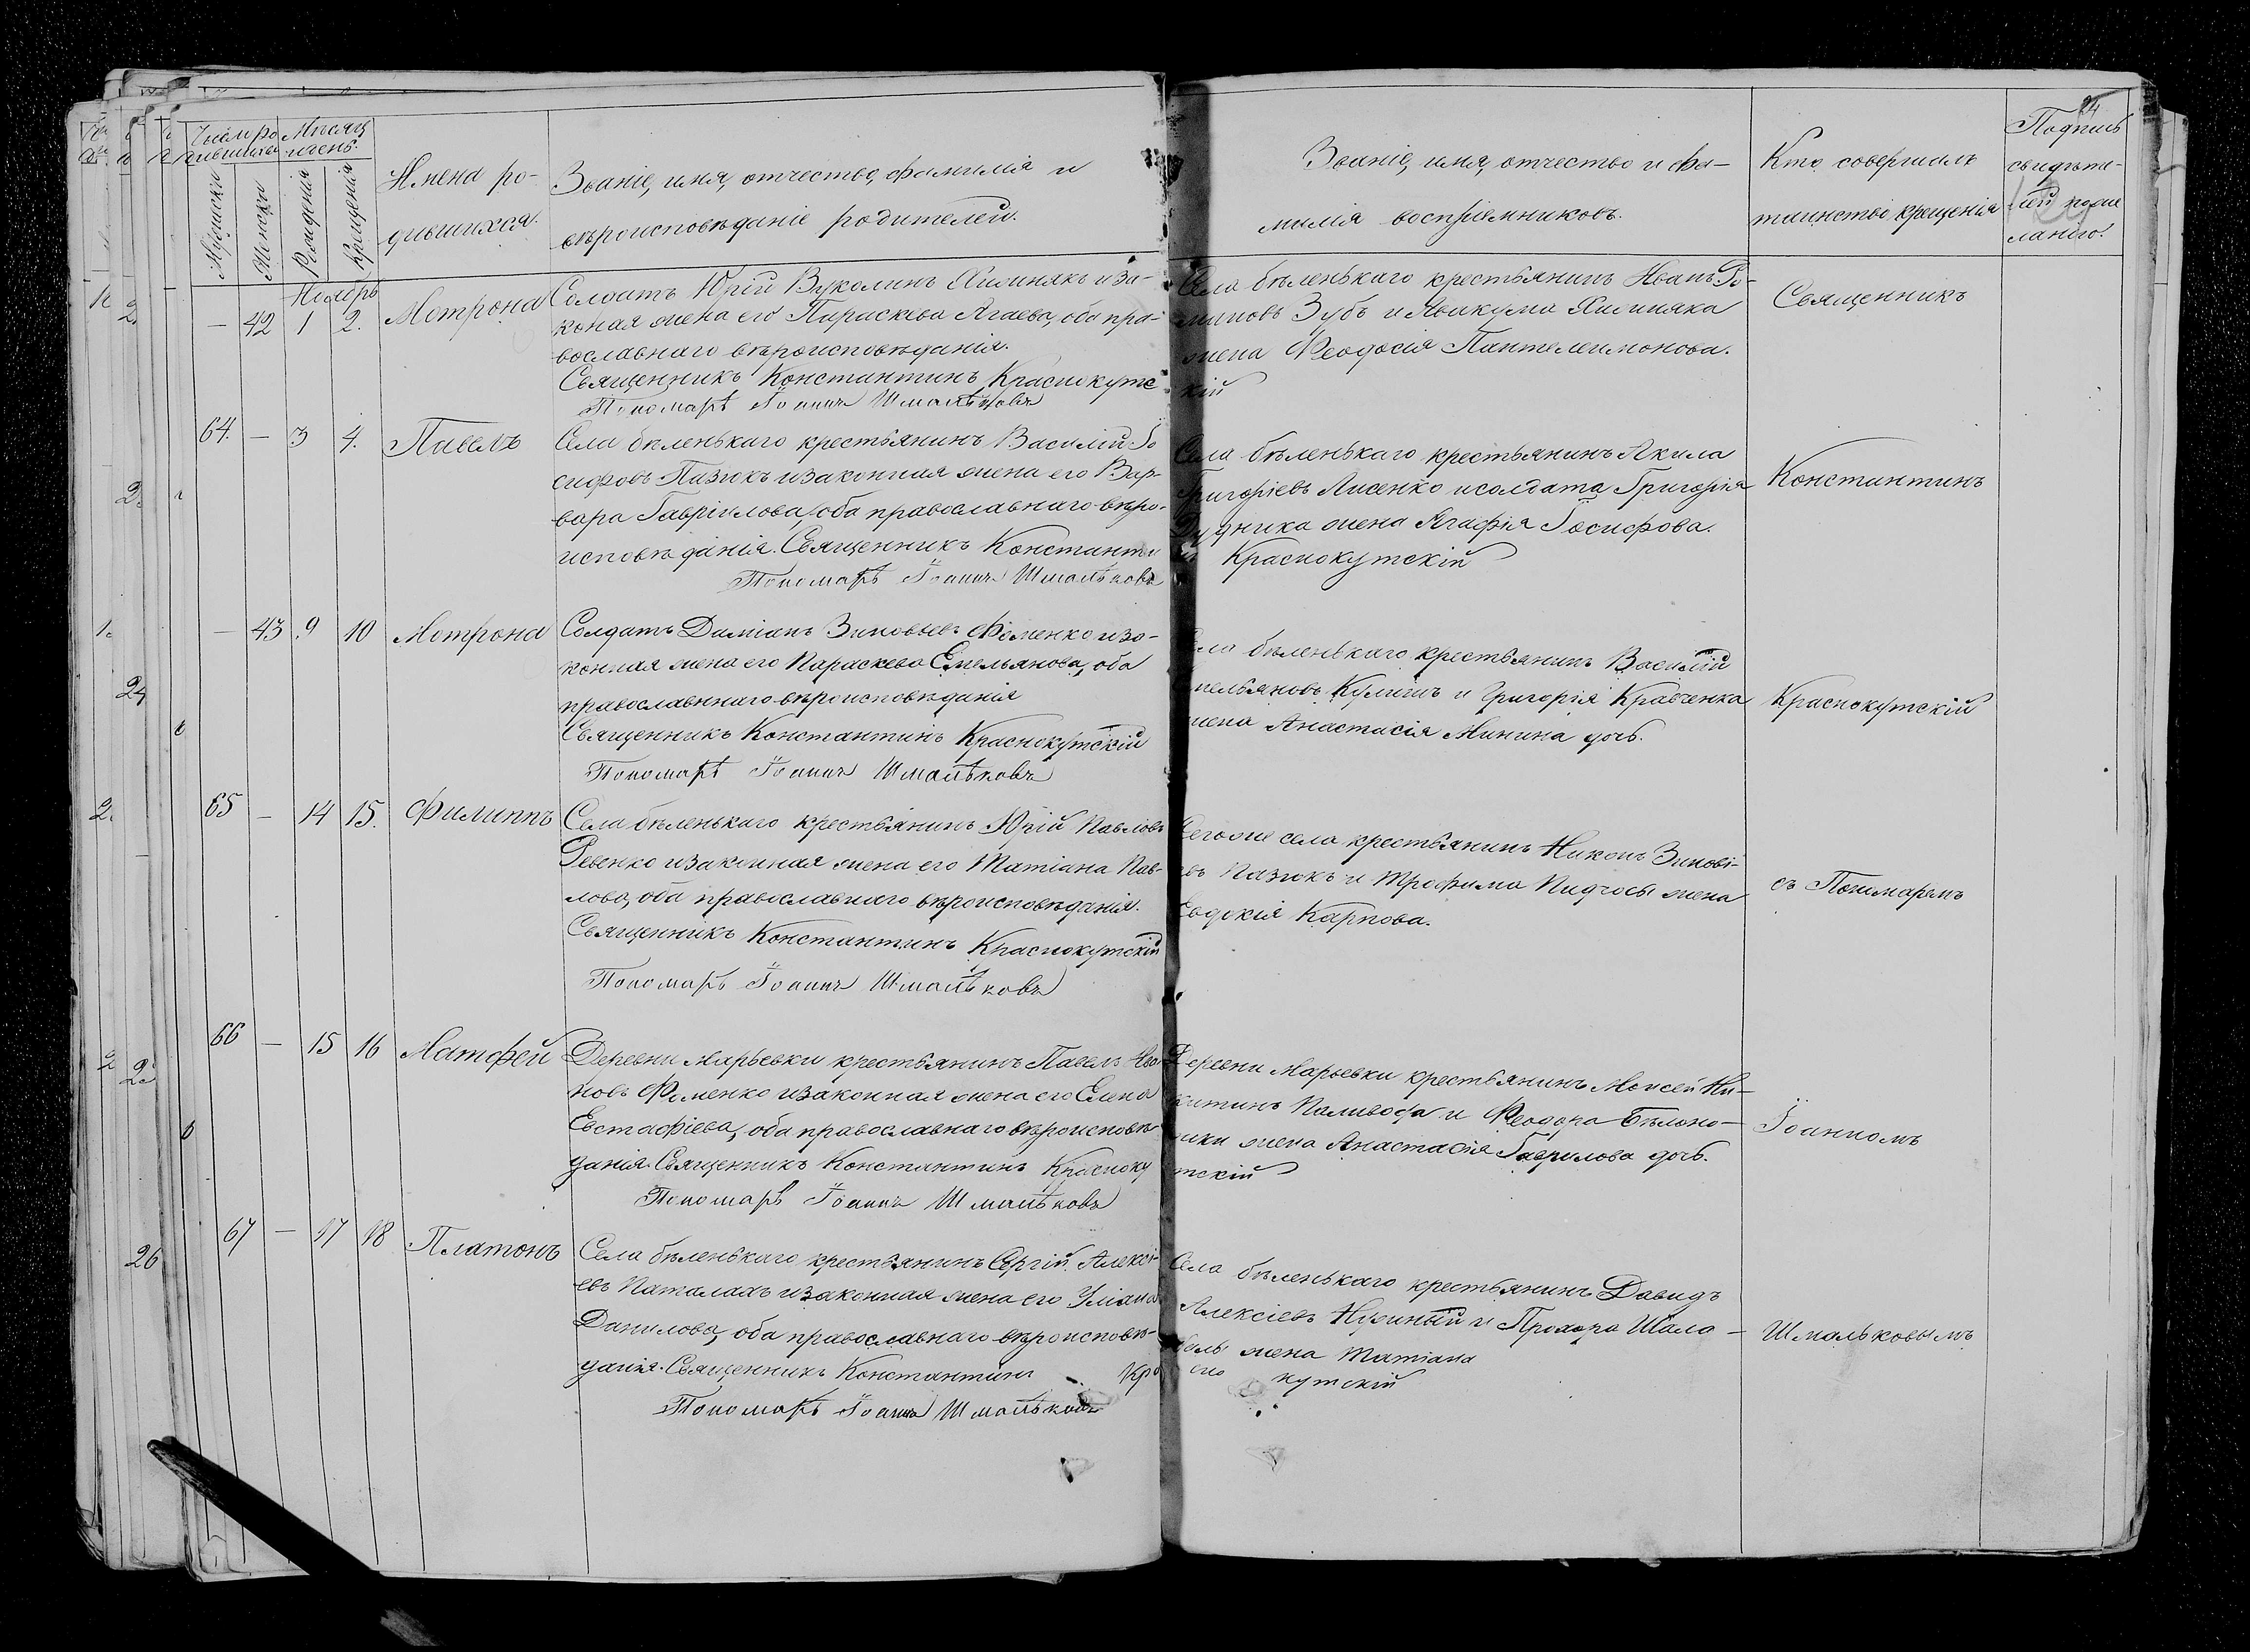 Числ. ро-
дившихся
Мѣсяцъ
и день.
Мужески
Женски
Рожденія
Крещенія
Имена ро-
дившихся.
Званіе, имя, отчество, фамилія и
вѣроисповѣданіе родителей.
Званіе, имя, отчество и фа-
милія воспріемниковъ.
Кто совершалъ
таинство крещенія
Подпись
свидѣте-
лей
Ноябрь
— 42 1 2. Мотрона
Солдатъ Юрій Вуколинъ Хилинякъ и за-
коная жена его Параскева Агаева, оба пра-
вославнаго вѣроисповѣданія.
Священникъ Константинъ Краснокутс
кій
Пономарь Іоаннъ Шмальковъ
Села бѣленькаго крестьянинъ Иванъ
Зубъ и Авакума Хилиняка
жена Феодосія Пантелеимонова.
Священникъ
64. — 3 4. Павелъ
Села бѣленькаго крестьянинъ Василій Іо
сифовъ Пазюкъ и законная жена его Вар-
вара Гавріилова, оба православнаго вѣро-
исповѣданія. Священникъ Константи
нъ Краснокутскій
Пономарь Іоаннъ Шмальковъ
Села бѣленькаго крестьянинъ Акила
Григоріевъ Лисенко и солдата Григорія
Дудника жена Агафія Іосифова.
Константинъ
— 43 9 10 Мотрона
Солдатъ Даміанъ Зиновьевъ Фоменко и за-
конная жена его Параскева Емельянова, оба
православннаго вѣроисповѣданія
Священникъ Константинъ Краснокутскій
Пономарь Іоаннъ Шмальковъ
Села бѣленькаго крестьянинъ Василій
Емельяновъ Кулишъ и Григорія Кравченка
жена Анастасія Минина дочь.
Краснокутскій
65 — 14 15. Филиппъ
Села бѣленькаго крестьянинъ Юрій Павловъ
Ревенко и законная жена его Татіана Пав-
лова, оба православнаго вѣроисповѣданія.
Священникъ Константинъ Краснокутскій
Пономарь Іоаннъ Шмальковъ
Тогоже села крестьянинъ Никонъ Зинові-
евъ Пазюкъ и Трофима Пидчосы жена
Евдокія Карпова.
съ Пономаремъ
66 — 15 16 Матфей
Деревни Марьевки крестьянинъ Павелъ Ива
новъ Фоменко и законная жена его Елена
Евстафіева, оба православнаго вѣроисповѣ-
данія. Священникъ Константинъ Красноку
тскій
Пономарь Іоаннъ Шмальковъ
Деревни Марьевки крестьянинъ Моисей Ни-
китинъ Паливода и Феодора Бѣлоно-
жки жена Анастасія Гаврилова дочь.
Іоанномъ
67 — 17 18 Платонъ
Села бѣленькаго крестьянинъ Сергій Алексі-
евъ Паталахъ и законная жена его Уліана
Данилова, оба православнаго вѣроисповѣ-
данія. Священникъ Константинъ Кра
сно кутскій
Пономарь Іоаннъ Шмальковъ
Села бѣленькаго крестьянинъ Давидъ
Алексіевъ Нужный и Прохора Шала-
жена Татіана
Шмальковымъ